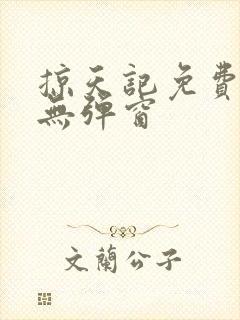 掠天記免費
無彈窗
文蘭公子